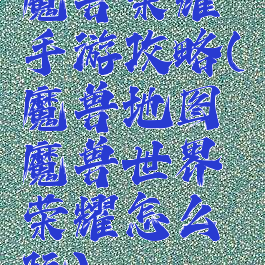 魔兽荣耀
手游攻略(
魔兽地图
魔兽世界
荣耀怎么
玩)